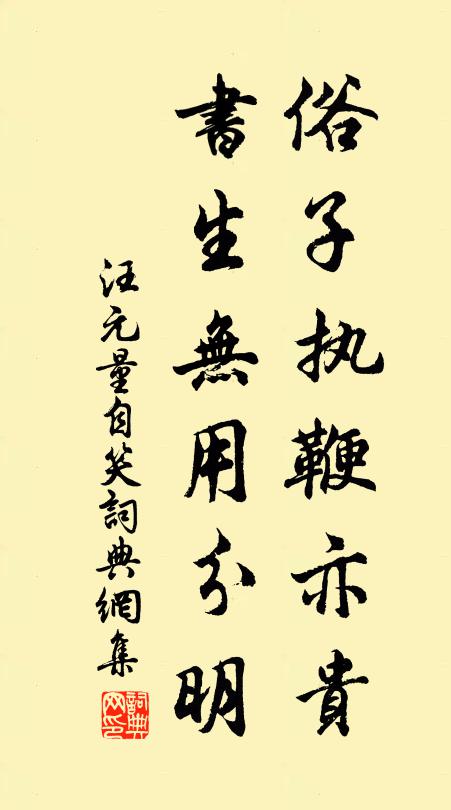 俗子执鞭亦貴
書生無用分明
汪元量自笑詞典網集
詞典網印